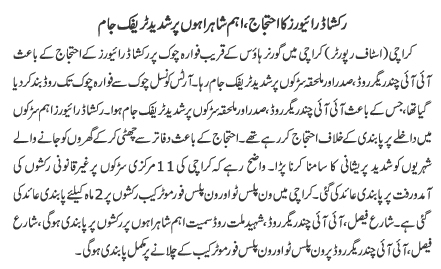 رکشا ڈرائیورز کا احتجاج، اہم شاہراہوں پر شدید ٹریفک جام
کراچی (اسٹاف رپورٹر) کراچی میں گورنر ہاؤس کے قریب فوارہ چوک پر رکشا ڈرائیورز کے احتجاج کے باعث
آئی آئی چندریگر روڈ، صدر اور ملحقہ سڑکوں پر شدید ٹریفک جام رہا۔ آرٹس کونسل چوک سے فوارہ چوک تک روڈ بند کر دیا
گیا تھا، جس کے باعث آئی آئی چندریگر روڈ، صدر اور ملحقہ سڑکوں پر شدید ٹریفک جام ہوا۔ رکشا ڈرائیورز اہم سڑکوں
میں داخلے پر پابندی کے خلاف احتجاج کر رہے تھے۔ احتجاج کے باعث دفاتر سے چھٹی کر کے گھروں کو جانے والے
شہریوں کو شدید پریشانی کا سامنا کرنا پڑا۔ واضح رہے کہ کراچی کی 11 مرکزی سڑکوں پر غیر قانونی رکشوں کی
آمد و رفت پر پابندی عائد کی گئی۔ کراچی میں ون پلس ٹو اور ون پلس فور موٹر کیب رکشوں پر 2 ماہ کیلئے پابندی عائد کی
گئی ہے۔ شارع فیصل، آئی آئی چندریگر روڈ، شہید ملت روڈ سمیت اہم شاہراہوں پر رکشوں پر پابندی ہوگی، شارع
فیصل، آئی آئی چندریگر روڈ پر ون پلس ٹو اور ون پلس فور موٹر کیب کے چلانے پر مکمل پابندی ہوگی۔